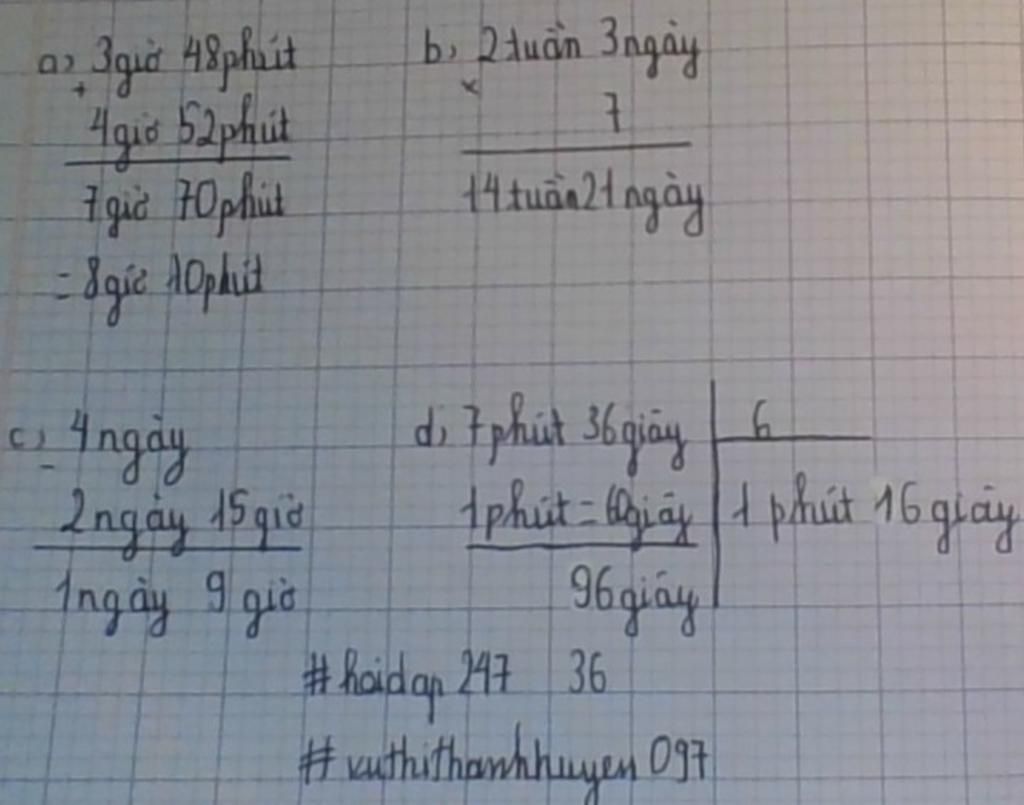 a) 3giờ 48phút
+
4giờ 52phút
7giờ 70phút
= 8giờ 10phút
b) 2tuần 3ngày
×
7
14tuần21ngày
c) 4ngày
-
2ngày 15giờ
1ngày 9giờ
d) 7phút 36giây 6
1phút=60giây 1 phút 16giây
96giây
36
#hoidap247
#vuthithanhhuyen097